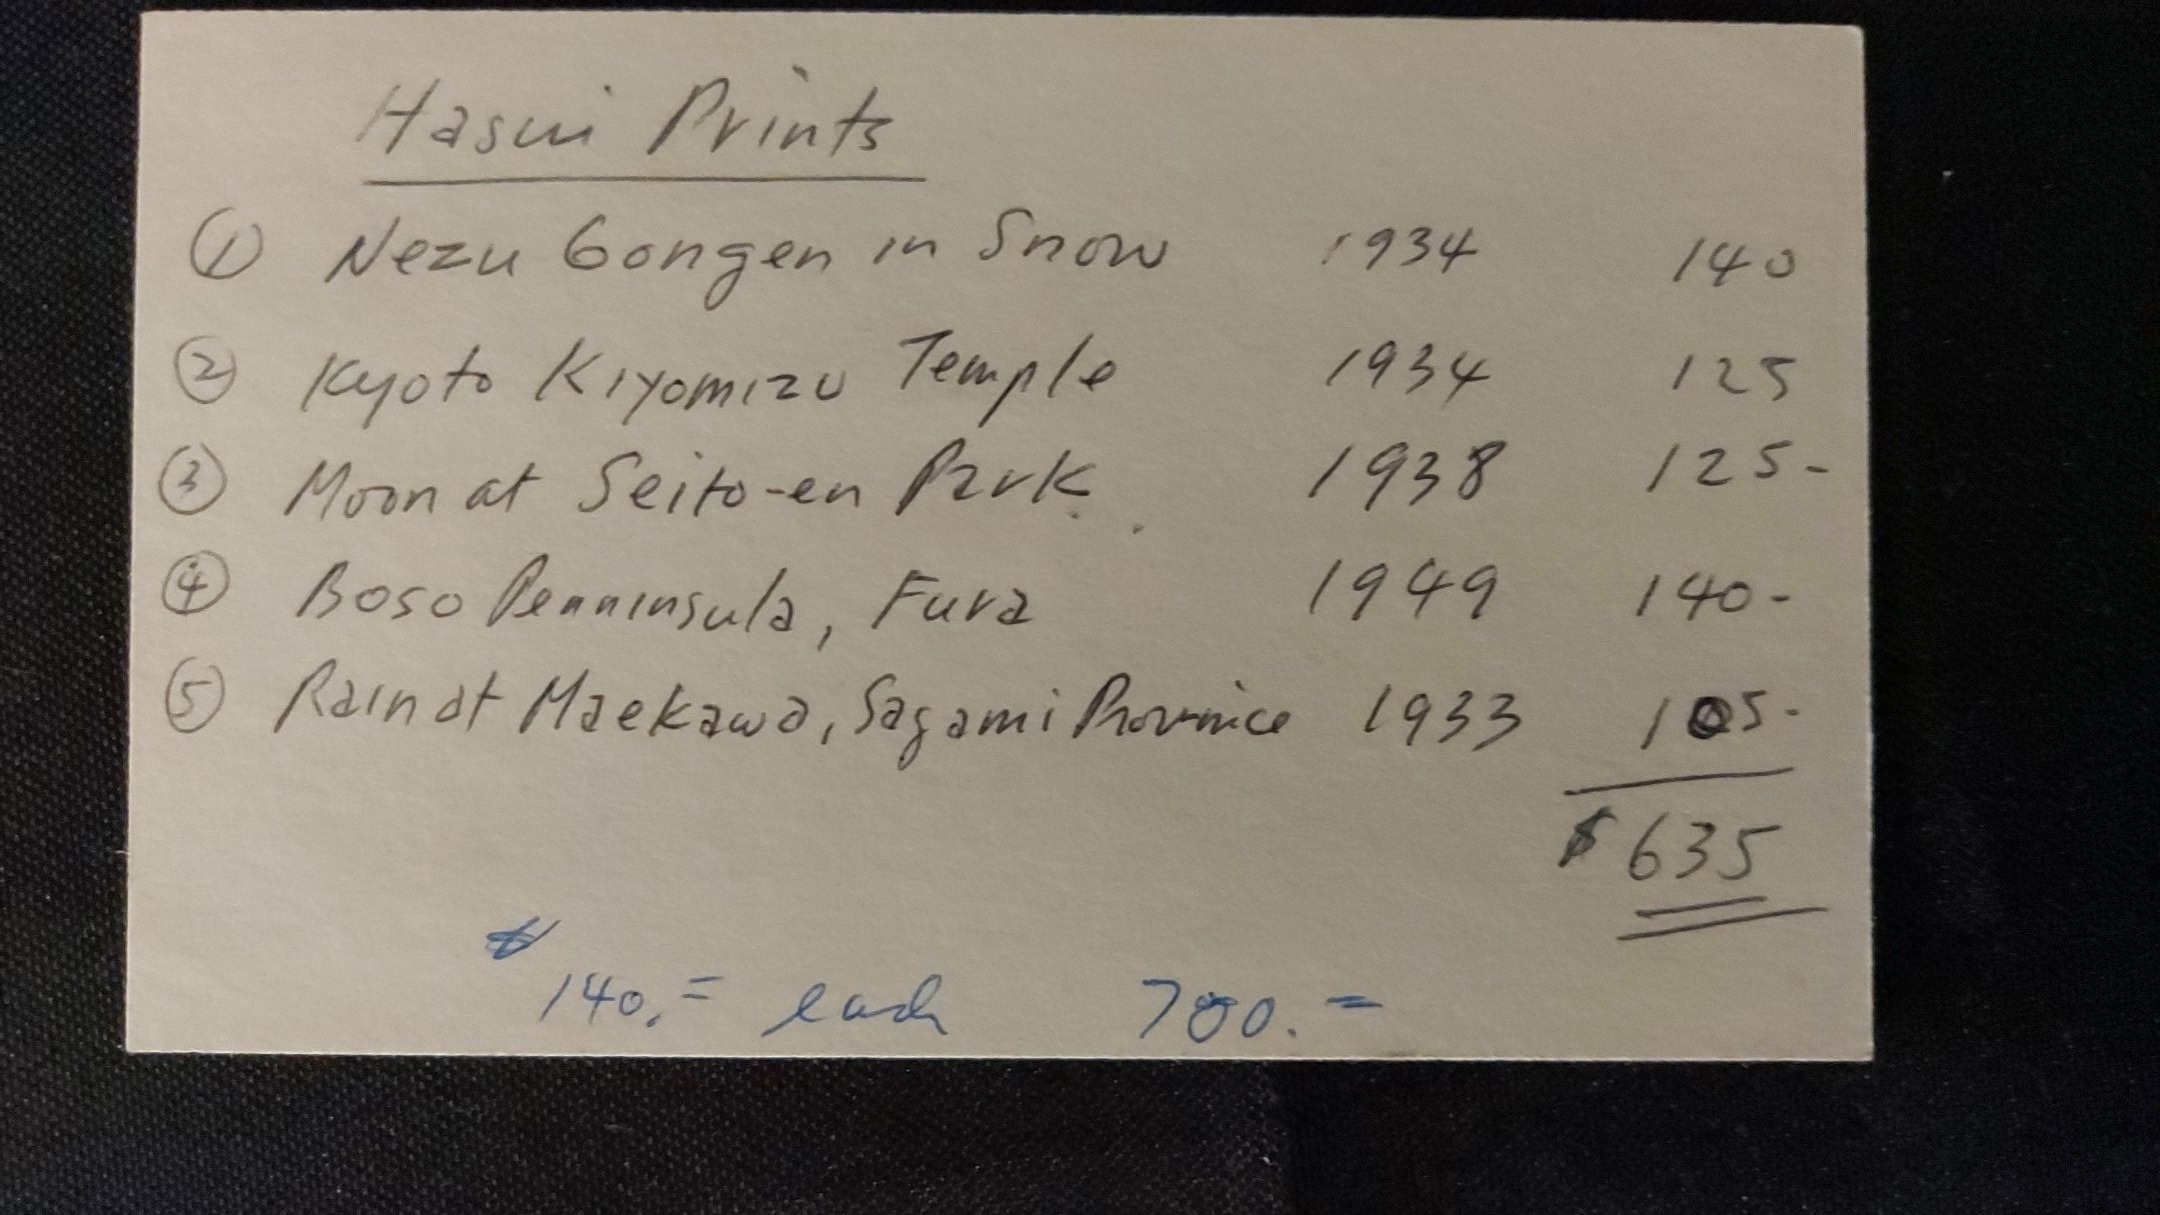 Hasui Prints
① Nezu Gongen in Snow 1934 140
② Kyoto Kiyomizu Temple 1934 125
③ Moon at Seito-en Park. 1938 125-
④ Boso Penninsula, Fura 1949 140-
⑤ Rain at Maekawa, Sagami Province 1933 105-
$635
$140.= each 700.=